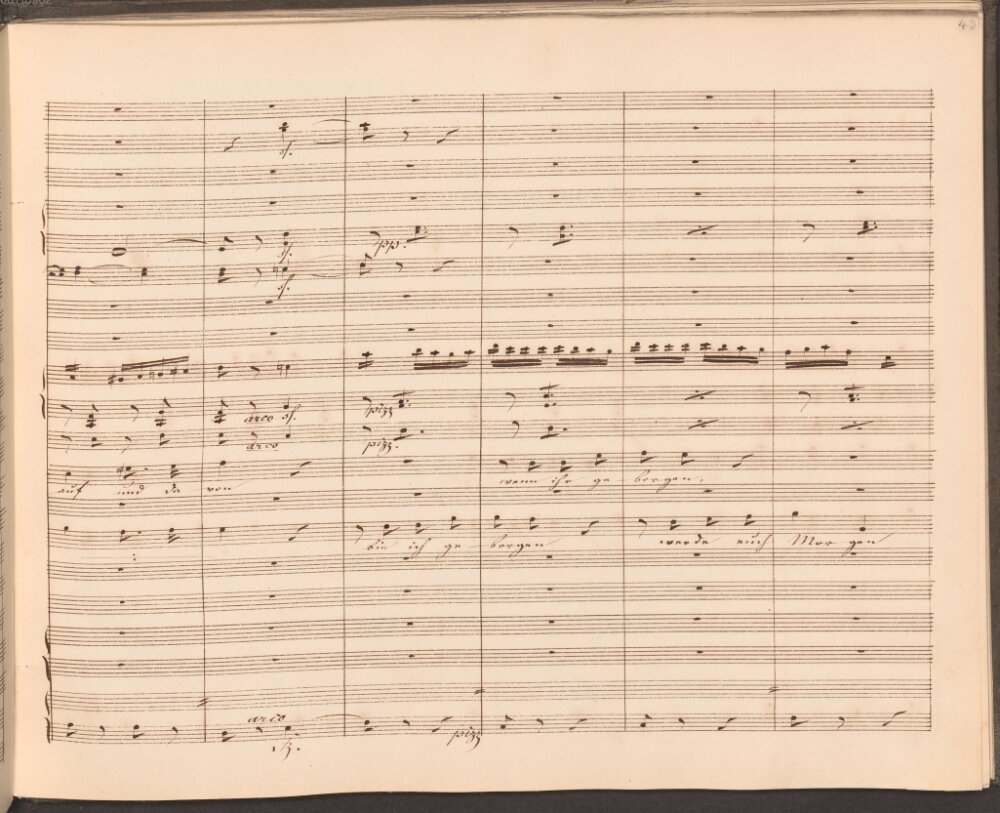 43
sf.
sf.
pp.
sf.
arco sf.
pizz
arco
pizz.
auf und da von
wenn ihr ge borgen,
bin ich ge borgen
werde euch Mor gen
arco
pizz